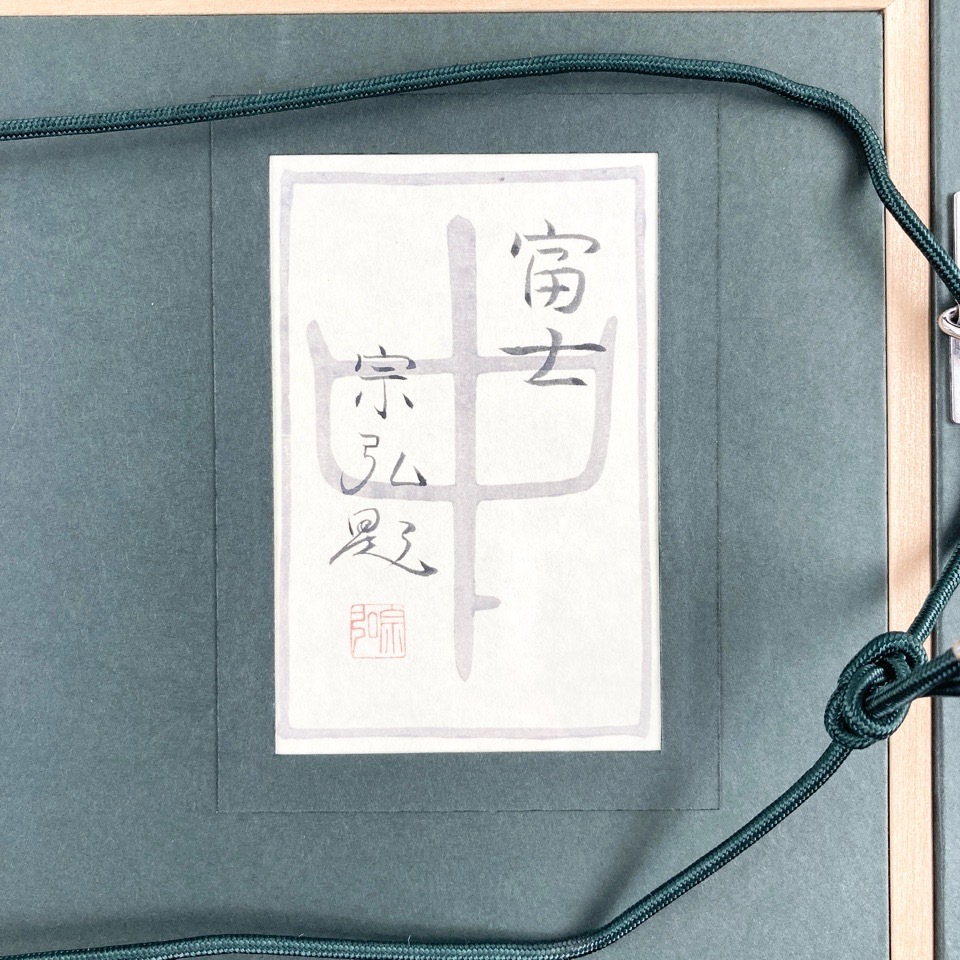 富士
宗弘題
宗弘